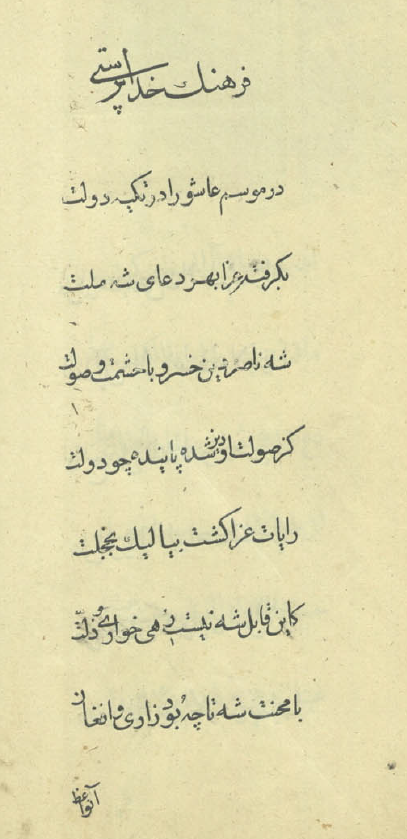 فرهنك خداپرستی
در موسم عاشورا در تكیه دولت
بكرفتند عزا بهر دعای شه ملت
شه ناصردین خسرو با حشمت و صولت
كز صولت او دین شده پاینده چو دولت
رایات عزا كشت بپا لیك بخجلت
كاین قابل شه نیست زهی خواری و ذلت
با محنت شه تا چه بود زاری و افغان